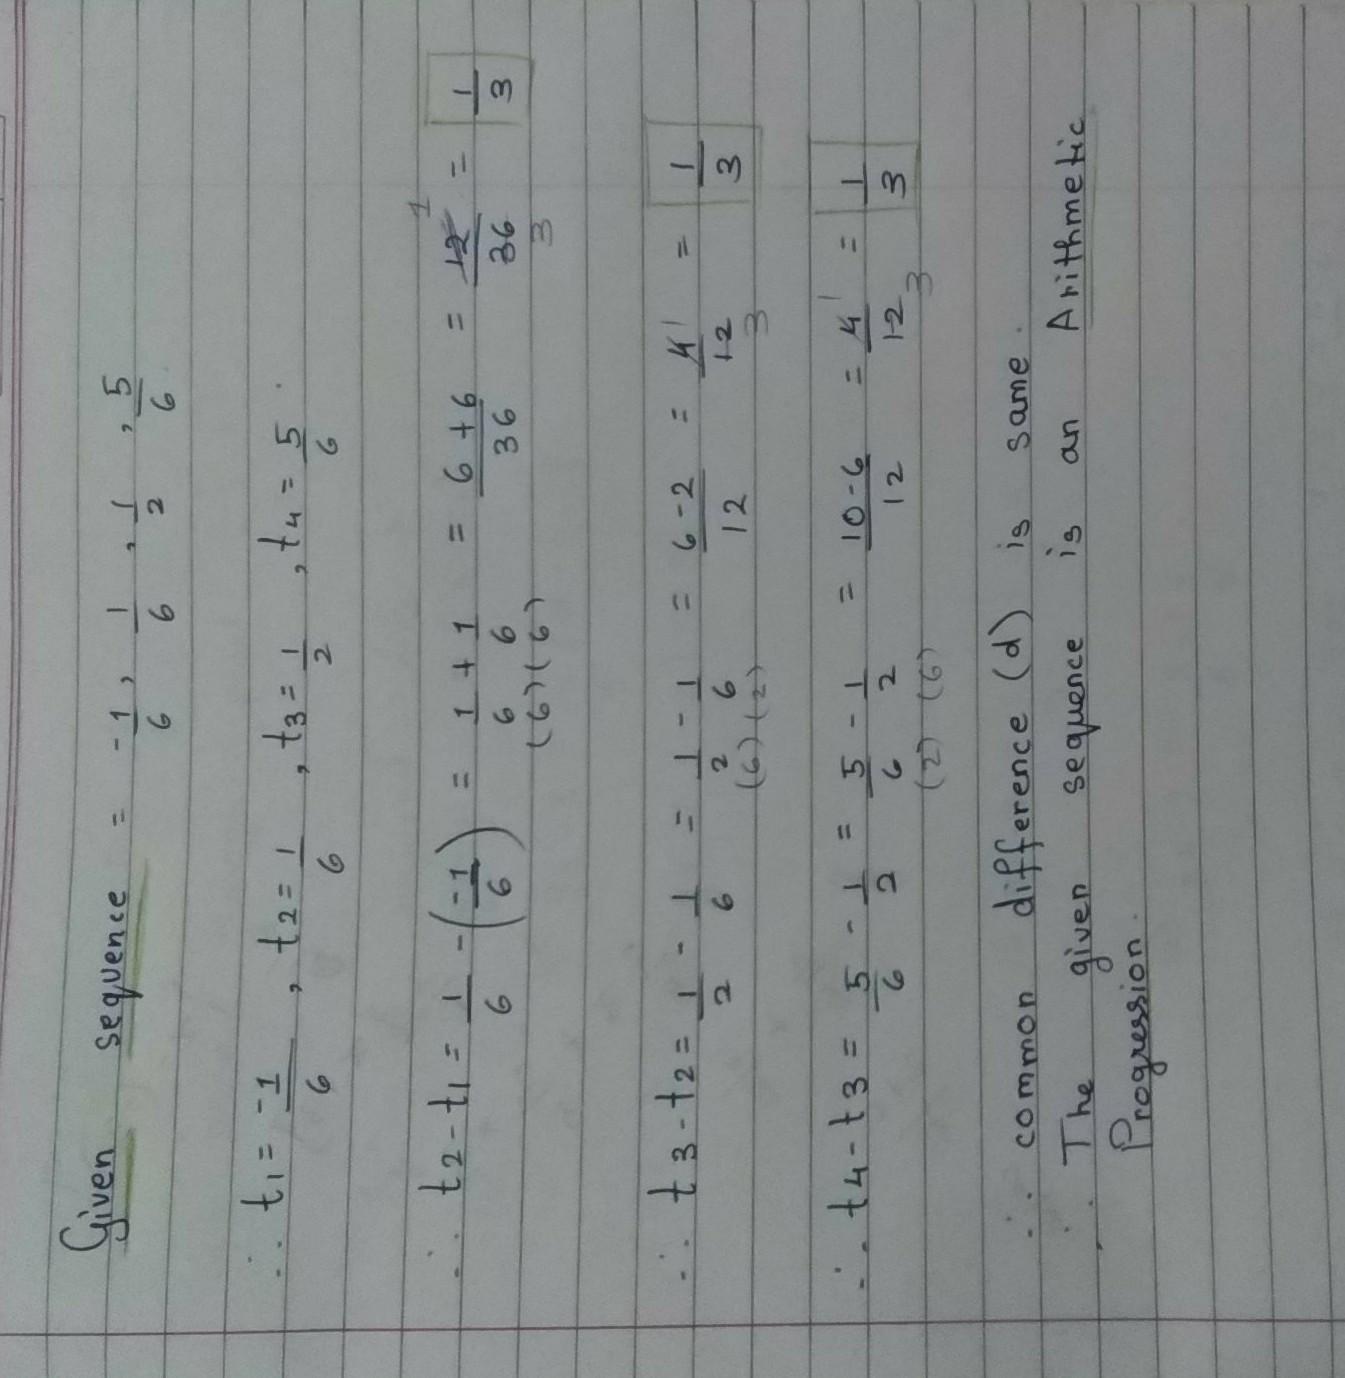 Given sequence = -1/6, 1/6, 1/2, 5/6
∴ t1 = -1/6, t2 = 1/6, t3 = 1/2, t4 = 5/6.
∴ t2 - t1 = 1/6 - (-1/6) = 1/6 + 1/6 = 6+6/36 = 12/36 = 1/3
(6) (6) 1 3
∴ t3 - t2 = 1/2 - 1/6 = 1/2 - 1/6 = 6-2/12 = 4/12 = 1/3
(6) (2) 1 3
∴ t4 - t3 = 5/6 - 1/2 = 5/6 - 1/2 = 10-6/12 = 4/12 = 1/3
(2) (6) 1 3
∴ common difference (d) is same.
∴ The given sequence is an Arithmetic
Progression.